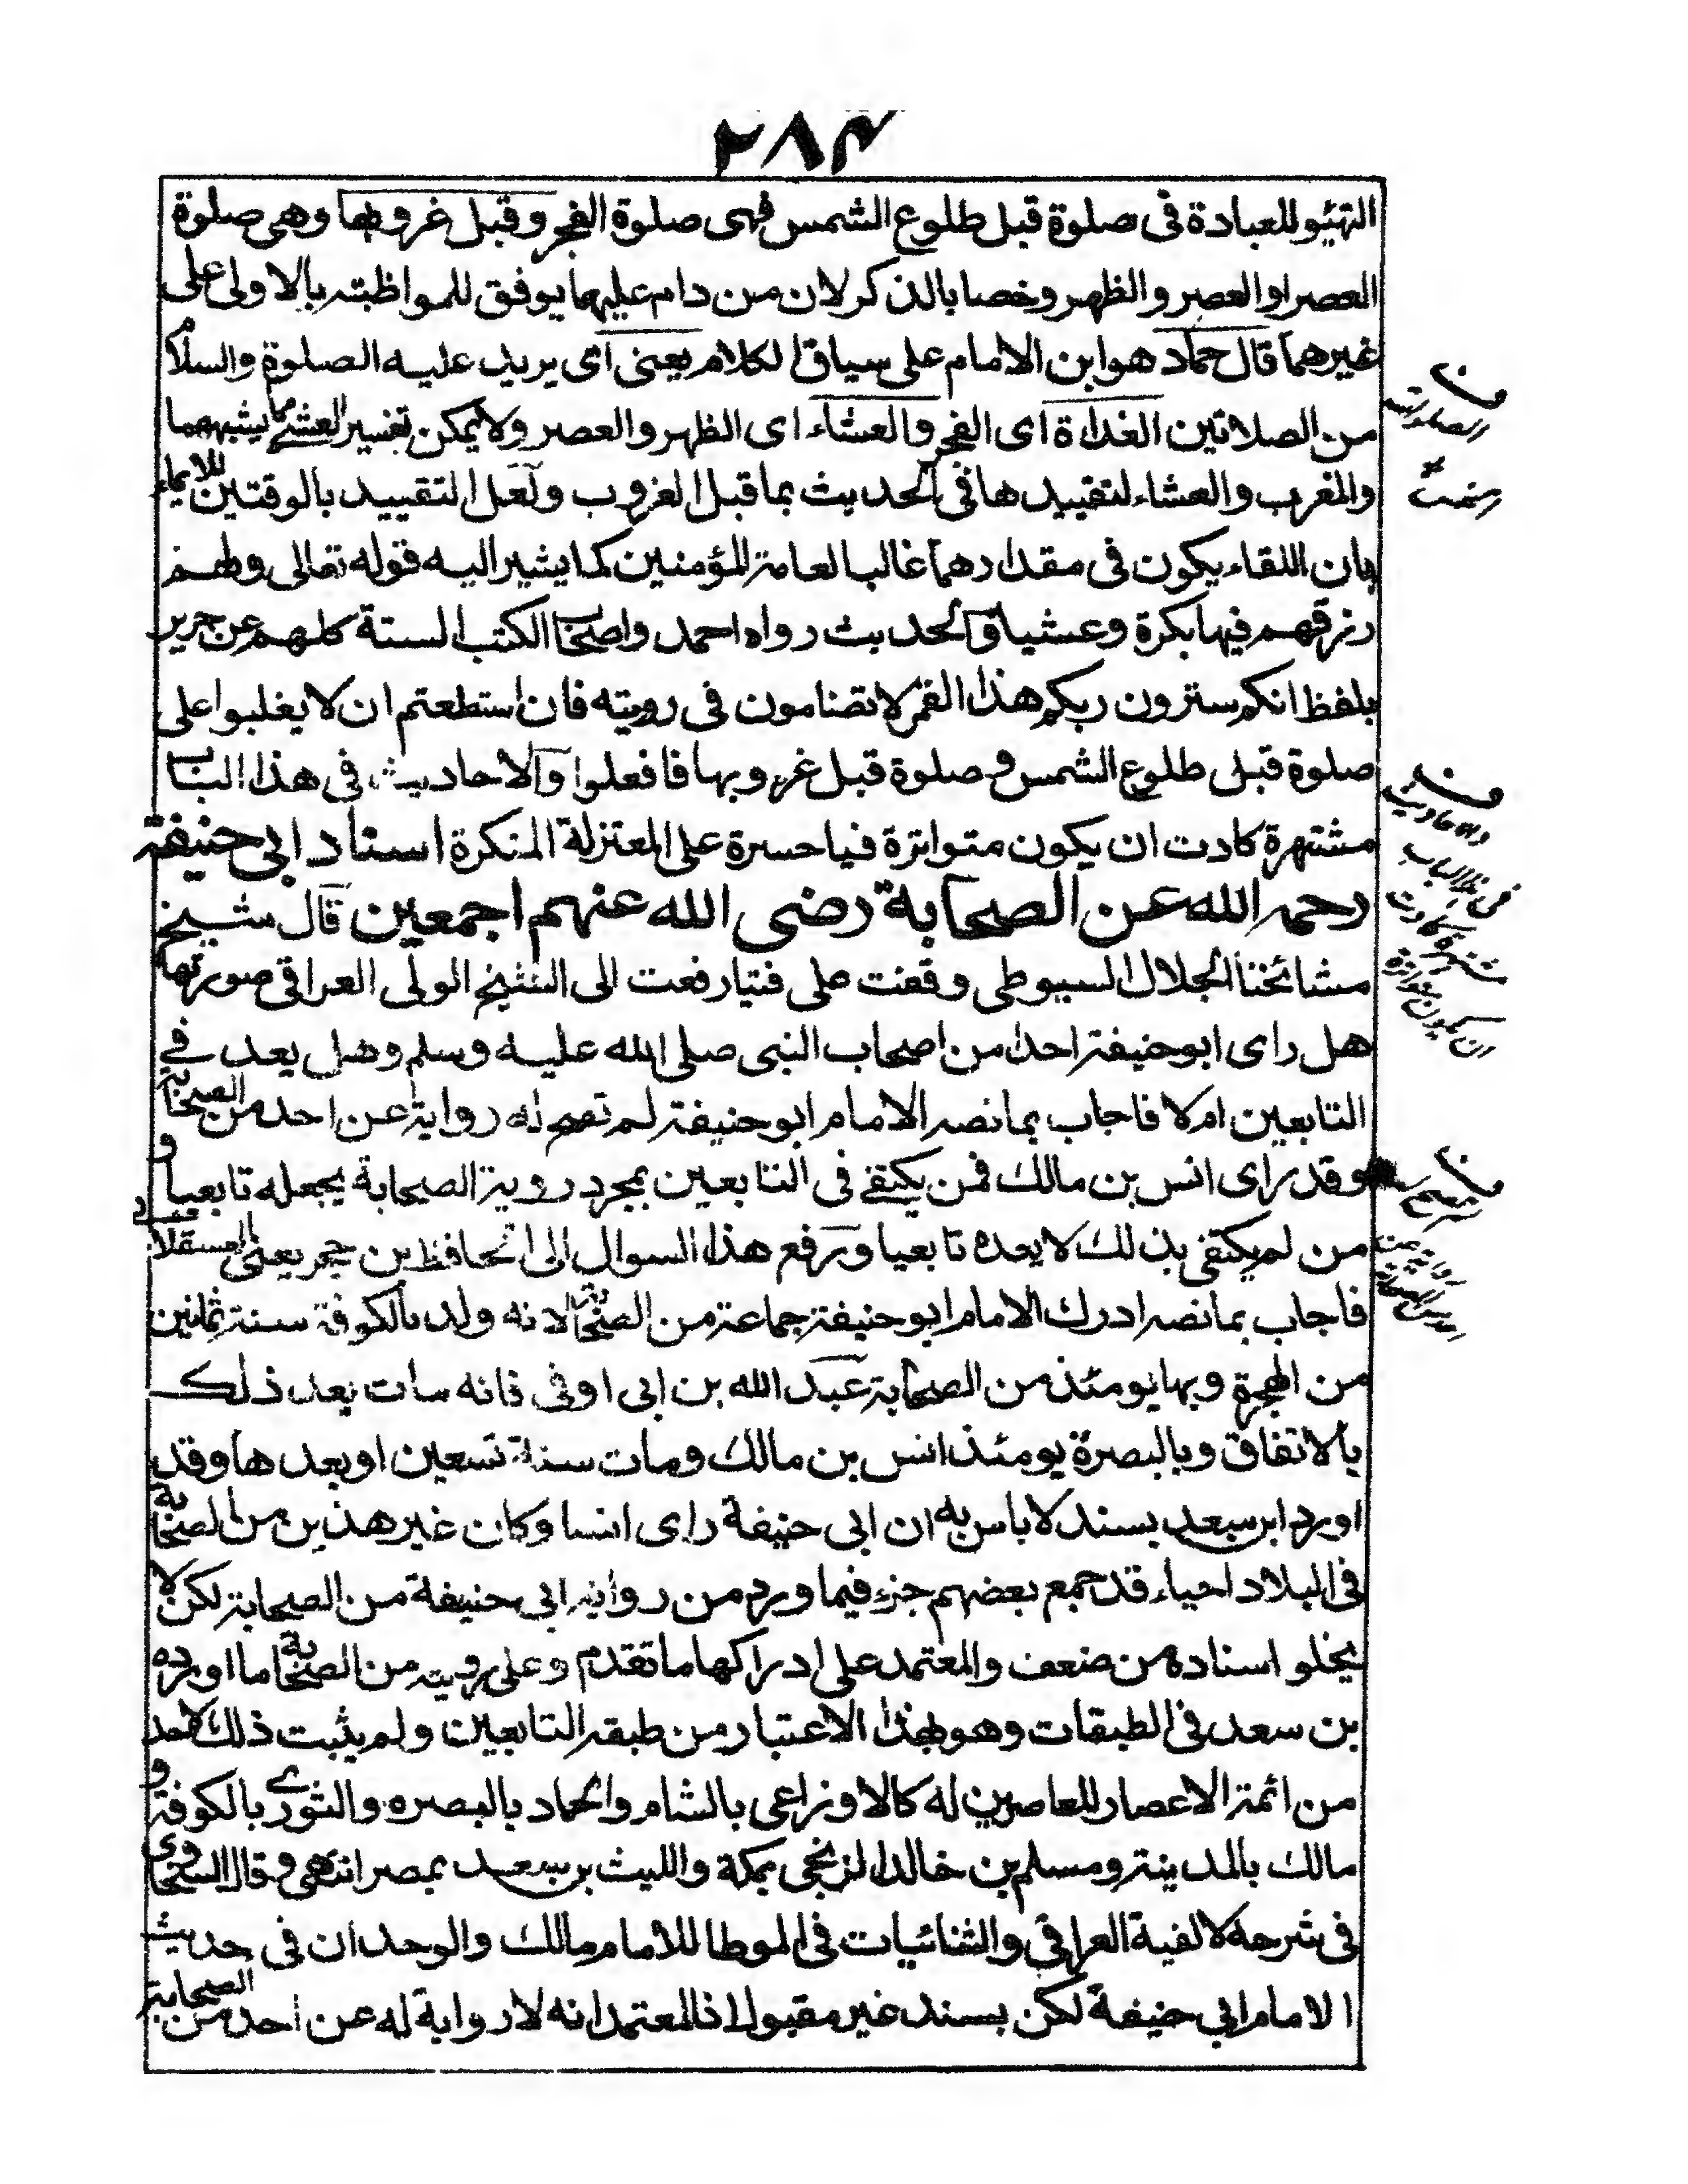 ٢٨٤
التهيؤ للعبادة فى صلوة قبل طلوع الشمس فهى صلوة الفجر وقبل غروبها وهى صلوة
العصر او العصر والظهر وخصا بالذكر لان من دام عليهما يوفق للمواظبته بالاولى على
غيرهما قال حماد هو ابن الامام على سياق الكلام يعنى اى يريد عليه الصلوة والسلام
من الصلاتين الغداة اى الفجر والعشاء اى الظهر والعصر ولا يمكن تفسير العشى بما يشبههما
والمغرب والعشاء لتقييدها فى الحديث بما قبل الغروب ولعل التقييد بالوقتين للايماء
بان اللقاء يكون فى مقدارهما غالبا لعامة المؤمنين كما يشير اليه قوله تعالى ولهم
رزقهم فيها بكرة وعشيا والحديث رواه احمد واصحاب الكتب الستة كلهم عن جرير
بلفظ انكم سترون ربكم هذا القمر لا تضامون فى رويته فان استطعتم ان لا يغلبوا على
صلوة قبل طلوع الشمس و صلوة قبل غروبها فافعلوا والاحاديث فى هذا الباب
مشتهرة كادت ان يكون متواترة فيا حسرة على المعتزلة المنكرة اسناد ابى حنيفة
رحمه الله عن الصحابة رضى الله عنهم اجمعين قال شيخ
مشائخنا الجلال السيوطى وقفت على فتيا رفعت الى الشيخ الولى العراقى صورتها
هل راى ابو حنيفة احدا من اصحاب النبى صلى الله عليه وسلم وهل يعد فى
التابعين ام لا فاجاب بما نصه الامام ابو حنيفة لم تصح له رواية عن احد من الصحابة
وقد راى انس بن مالك فمن يكتفى فى التابعين بمجرد روية الصحابة يجعله تابعيا و
من لم يكتفى بذلك لا يعده تابعيا ورفع هذا السوال الى الحافظ بن حجر يعنى العسقلانى
فاجاب بما نصه ادرك الامام ابو حنيفة جماعة من الصحابة لانه ولد بالكوفة سنة ثمانين
من الهجرة وبها يومئذ من الصحابة عبد الله بن ابى اوفى فانه مات بعد ذلك
بالاتفاق وبالبصرة يومئذ انس بن مالك ومات سنة تسعين او بعدها وقد
اورد ابن سعد بسند لا باس به ان ابى حنيفة راى انسا وكان غير هذين من الصحابة
فى البلاد احياء قد جمع بعضهم جزء فيما ورد من رواية ابى حنيفة من الصحابة لكن لا
يخلو اسناده من ضعف والمعتمد على ادراكها ما تقدم وعلى رويته من الصحابة ما اورده
بن سعد فى الطبقات وهو بهذا الاعتبار من طبقة التابعين ولم يثبت ذلك لاحد
من ائمة الاعصار المعاصرين له كالاوزاعى بالشام والحماد بالبصره والثورى بالكوفة و
مالك بالمدينة ومسلم بن خالد الزنجى بمكة والليث بن سعد بمصر انتهى وقال السخاوى
فى شرحه لالفية العراقى والثنائيات فى الموطا للامام مالك والوحدان فى حديث
الامام ابى حنيفة لكن بسند غير مقبول اذ المعتمد انه لا رواية له عن احد من الصحابة
والاحاديث
فى هذا الباب
مشتهرة كادت
ان يكون متواترة